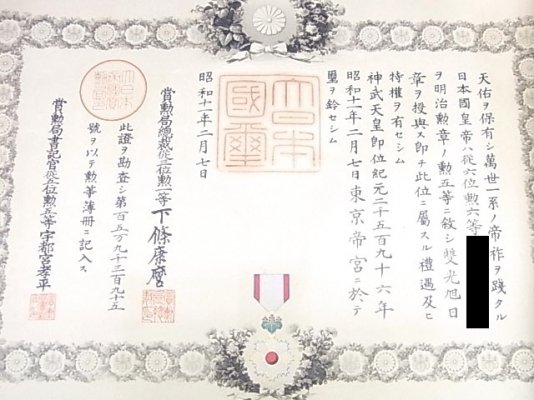 天佑ヲ保有シ萬世一系ノ帝祚ヲ踐タル
日本國皇帝ハ從六位勲六等
ヲ明治勲章ノ勲五等ニ敘シ雙光旭日
章ヲ授與ス即チ此位ニ屬スル禮遇及ヒ
特權ヲ有セシム
神武天皇即位紀元二千五百九十六年
昭和十一年二月七日東京帝宮ニ於テ
璽ヲ鈐セシム
大日本國璽
昭和十一年二月七日
賞勲局總裁從二位勲一等下條康麿
此證ヲ勘査シ第百五万九千三百九十五
號ヲ以テ勲等簿冊ニ記入ス
賞勲局書記官從五位勲五等宇都宮孝平